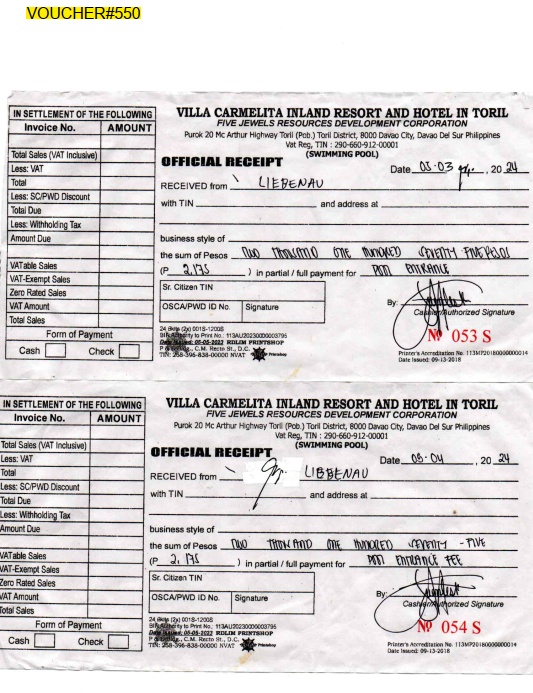 VOUCHER#550
IN SETTLEMENT OF THE FOLLOWING
Invoice No. AMOUNT
Total Sales (VAT Inclusive)
Less: VAT
Total
Less: SC/PWD Discount
Total Due
Less: Withholding Tax
Amount Due
VATable Sales
VAT-Exempt Sales
Zero Rated Sales
VAT Amount
Total Sales
Form of Payment
Cash Check
VILLA CARMELITA INLAND RESORT AND HOTEL IN TORIL
FIVE JEWELS RESOURCES DEVELOPMENT CORPORATION
Purok 20 Mc Arthur Highway Toril (Pob.) Toril District, 8000 Davao City, Davao Del Sur Philippines
Vat Reg, TIN : 290-660-912-00001
(SWIMMING POOL)
OFFICIAL RECEIPT
Date 03-03, 20 24
RECEIVED from LIEBENAU
with TIN and address at
business style of
the sum of Pesos TWO THOUSAND ONE HUNDRED SEVENTY FIVE PESOS
(P 2,175 ) in partial / full payment for POOL ENTRANCE
Sr. Citizen TIN
OSCA/PWD ID No. Signature
By:
Cashier/Authorized Signature
№ 053 S
24 Bklts (2x) 001S-1200S
BIR Authority to Print No.: 113AU20230000003795
Date Issued: 05-05-2023 RDLIM PRINTSHOP
C.M. Recto St., D.C.
TIN: 258-396-838-00000 NVAT Printshop
Printer's Accreditation No. 113MP20180000000014
Date Issued: 09-13-2018
IN SETTLEMENT OF THE FOLLOWING
Invoice No. AMOUNT
Total Sales (VAT Inclusive)
Less: VAT
Total
Less: SC/PWD Discount
Total Due
Less: Withholding Tax
Amount Due
VATable Sales
VAT-Exempt Sales
Zero Rated Sales
VAT Amount
Total Sales
Form of Payment
Cash Check
VILLA CARMELITA INLAND RESORT AND HOTEL IN TORIL
FIVE JEWELS RESOURCES DEVELOPMENT CORPORATION
Purok 20 Mc Arthur Highway Toril (Pob.) Toril District, 8000 Davao City, Davao Del Sur Philippines
Vat Reg, TIN : 290-660-912-00001
(SWIMMING POOL)
OFFICIAL RECEIPT
Date 03-04, 20 24
RECEIVED from LIEBENAU
with TIN and address at
business style of
the sum of Pesos TWO THOUSAND ONE HUNDRED SEVENTY - FIVE
(P 2,175 ) in partial / full payment for POOL ENTRANCE FEE
Sr. Citizen TIN
OSCA/PWD ID No. Signature
By:
Cashier/Authorized Signature
№ 054 S
24 Bklts (2x) 001S-1200S
BIR Authority to Print No.: 113AU20230000003795
Date Issued: 05-05-2023 RDLIM PRINTSHOP
C.M. Recto St., D.C.
TIN: 258-396-838-00000 NVAT Printshop
Printer's Accreditation No. 113MP20180000000014
Date Issued: 09-13-2018